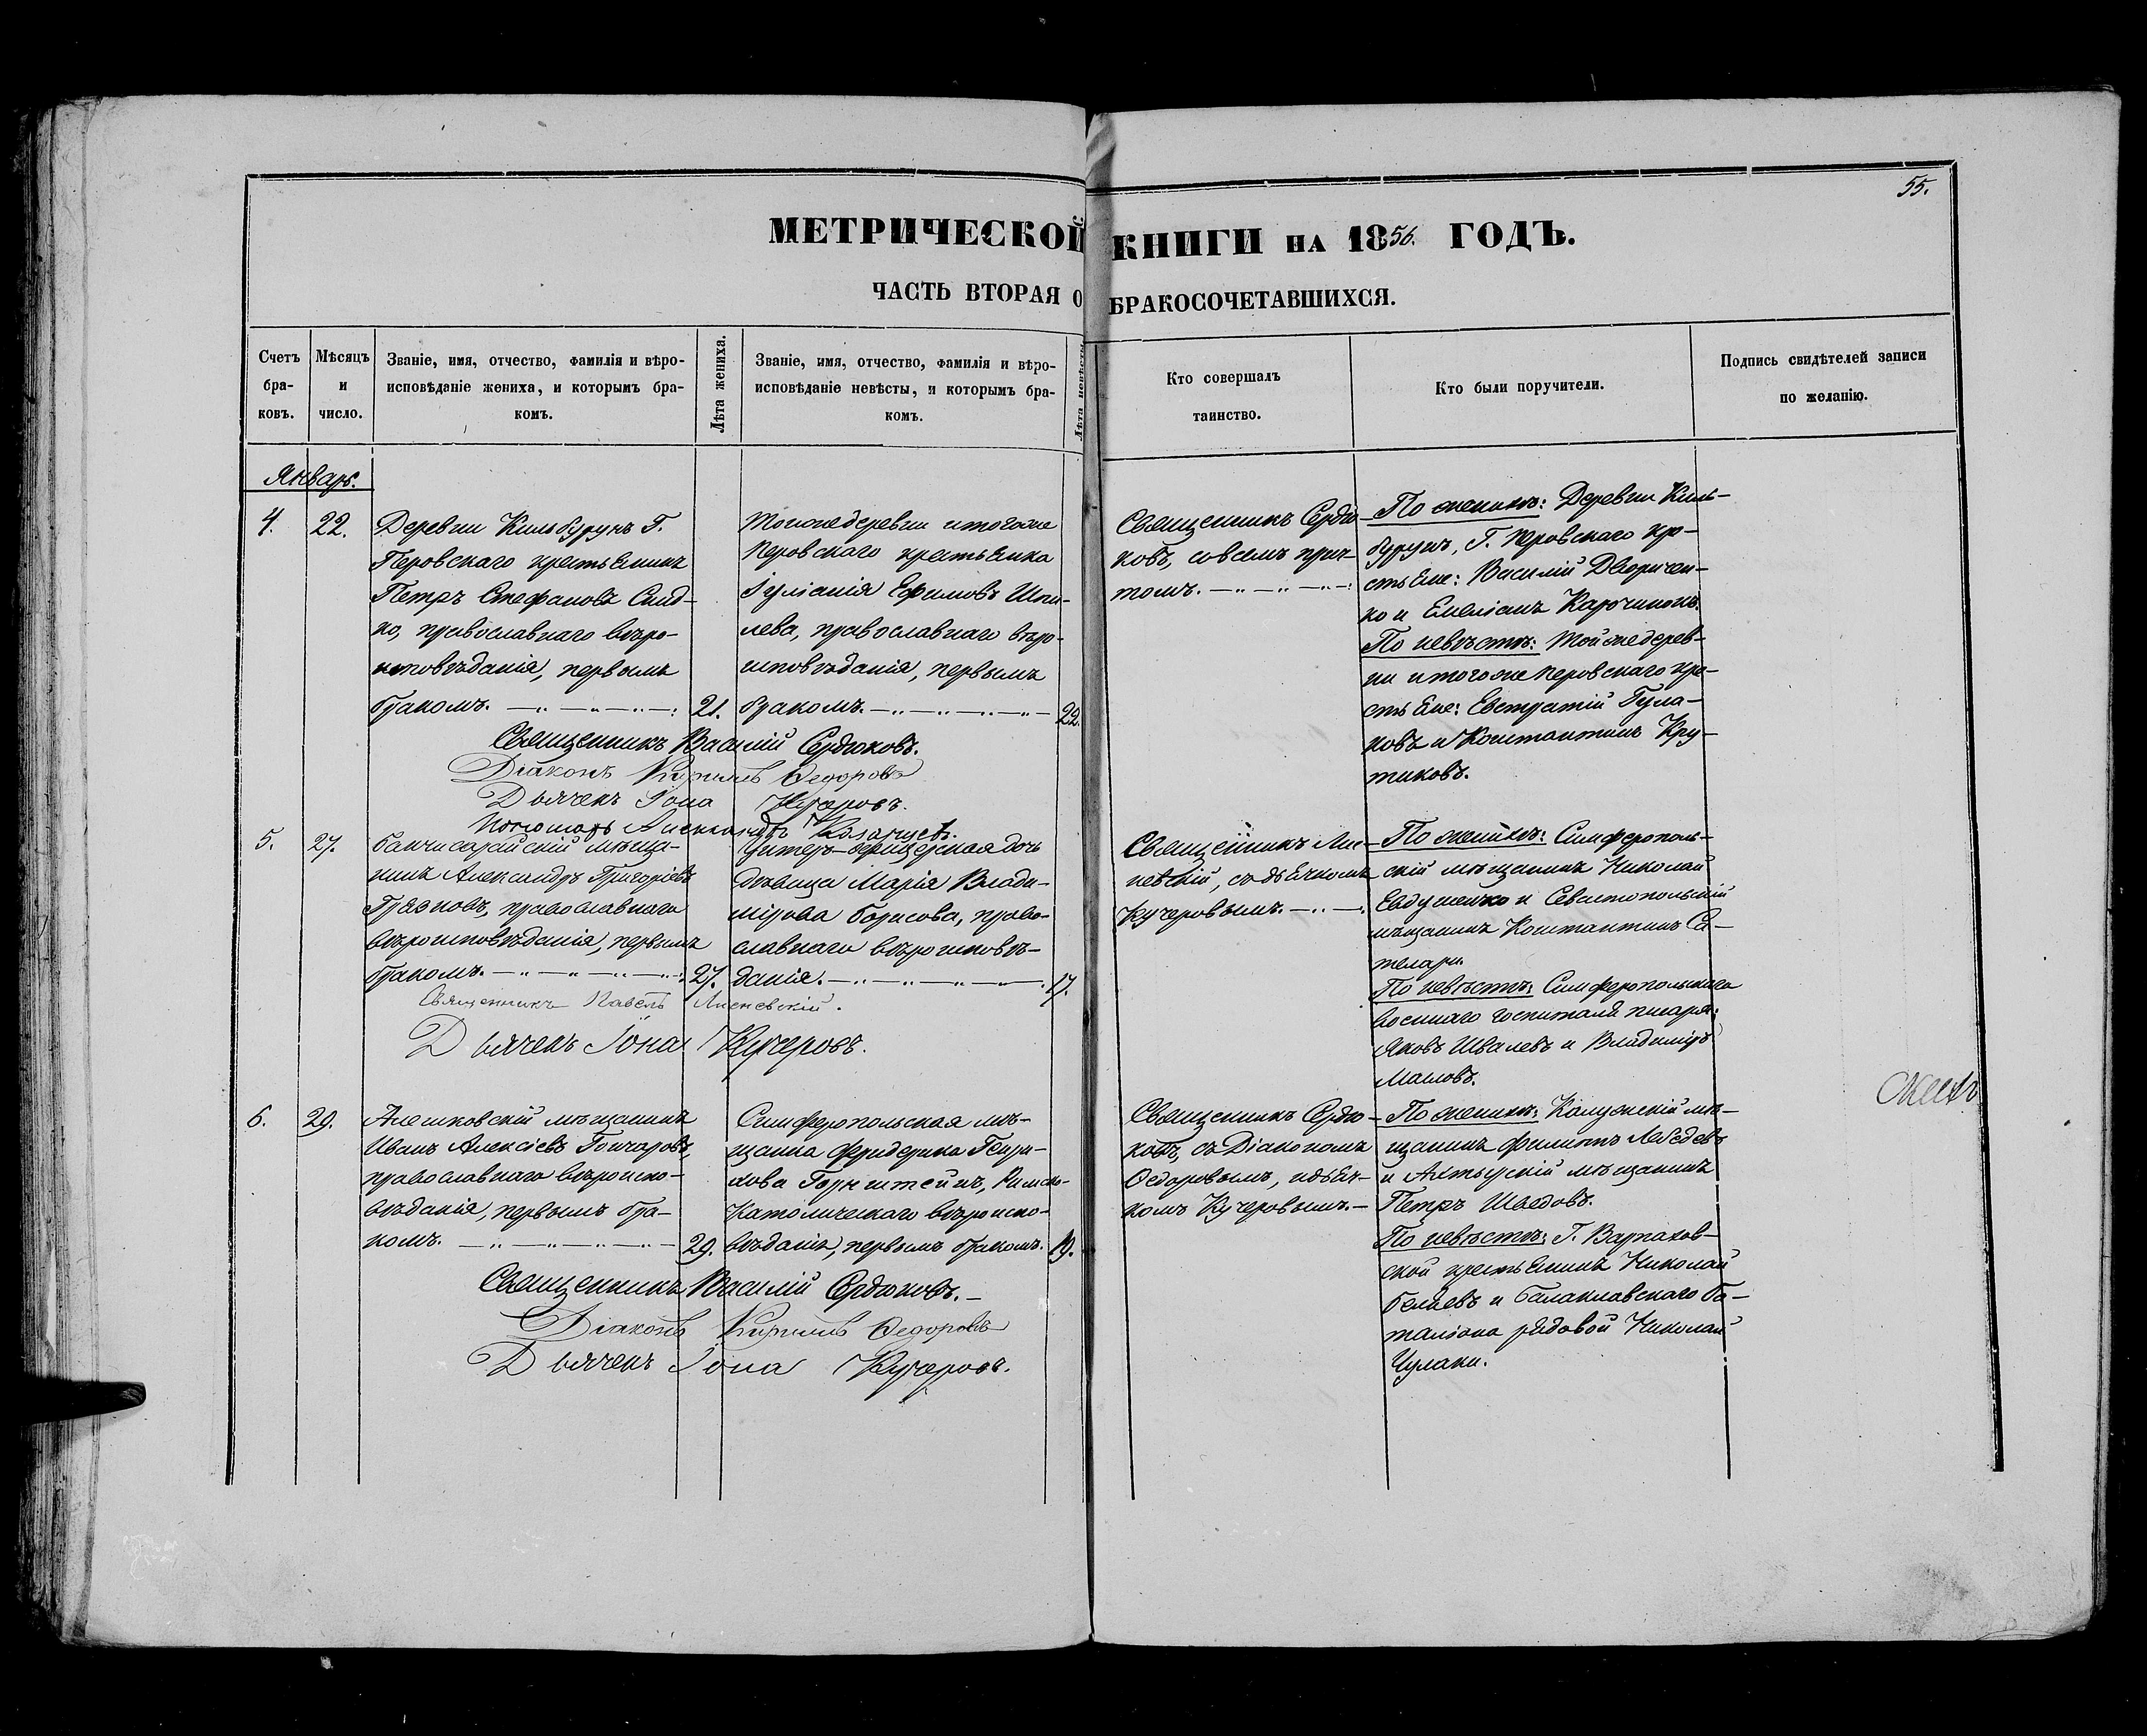 55.
МЕТРИЧЕСКОЙ КНИГИ НА 1856. ГОДЪ.
ЧАСТЬ ВТОРАЯ О БРАКОСОЧЕТАВШИХСЯ.
Счетъ бра-ковъ.
Мѣсяцъ и число.
Званіе, имя, отчество, фамилія и вѣро-
исповѣданіе жениха, и которымъ бра-
комъ.
Лѣта жениха.
Званіе, имя, отчество, фамилія и вѣро-
исповѣданіе невѣсты, и которымъ бра-
комъ.
Лѣта невѣсты
Кто совершалъ
таинство.
Кто были поручители.
Подпись свидѣтелей записи
по желанію.
Январь.
4. 22.
Деревни Кильбурунъ Г.
Перовскаго крестьянинъ
Петръ Стефановъ
ко, православнаго вѣро-
исповѣданія, первымъ
бракомъ. 21.
Тойже деревни и тогоже
Перовскаго крестьянка
Іуліанія Ефимовъ
лева, православнаго вѣро-
исповѣданія, первымъ
бракомъ. 22.
Священникъ Сердю-
ковъ, со всемъ прич-
томъ.
По женихѣ: Деревни Киль-
бурунъ, Г. Перовскаго кре-
стьяне: Василій Дворичен-
ко и Емеліанъ
По невѣстѣ: Тойже дерев-
ни и тогоже Перовскаго кре-
стьяне: Евстратій Гула-
ковъ и Константинъ Кру-
тиковъ.
Священникъ Василій Сердюковъ.
Діаконъ Кириллъ Ѳедоровъ
Дьячекъ Іона Кучеровъ.
Пономарь Александръ Казанцевъ.
5. 27.
Бахчисарайскій мѣща-
нинъ Александръ Григоріевъ
Грязновъ, православнаго
вѣроисповѣданія, первымъ
бракомъ. 27.
Унтеръ-офицерская дочь
дѣвица Марія Влади-
мірова Борисова, право-
славнаго вѣроисповѣ-
данія. 17.
Священникъ Лис-
невскій, съ дьячкомъ
Кучеровымъ.
По женихѣ: Симферополь-
скій мѣщанинъ Николай
Евдушенко и Севастопольскій
мѣщанинъ Константинъ Са-
телари.
По невѣстѣ: Симферопольскаго
военнаго госпиталя писаря:
Яковъ Ивалевъ и Владиміръ
Масловъ.
Священникъ Павелъ Лисневскій.
Дьячекъ Іона Кучеровъ.
6. 29.
Алешковскій мѣщанинъ
Иванъ Алексіевъ Гончаровъ,
православнаго вѣроиспо-
вѣданія, первымъ бра-
комъ. 29.
Симферопольская мѣ-
щанка Фридерика Генри-
хова Горнштейнъ, Римско-
Католическаго вѣроиспо-
вѣданія, первымъ бракомъ. 19.
Священникъ Сердю-
ковъ, съ Діакономъ
Ѳедоровымъ, и дьяч-
комъ Кучеровымъ.
По женихѣ: Калужскій мѣ-
щанинъ Филипъ Лебедевъ
и Ахтырскій мѣщанинъ
Петръ Шведовъ.
По невѣстѣ: Г. Варпахов-
ской крестьянинъ Николай
Беляевъ и Балаклавскаго ба-
таліона рядовой Николай
Чулаки.
Священникъ Василій Сердюковъ.
Діаконъ Кириллъ Ѳедоровъ
Дьячекъ Іона Кучеровъ.